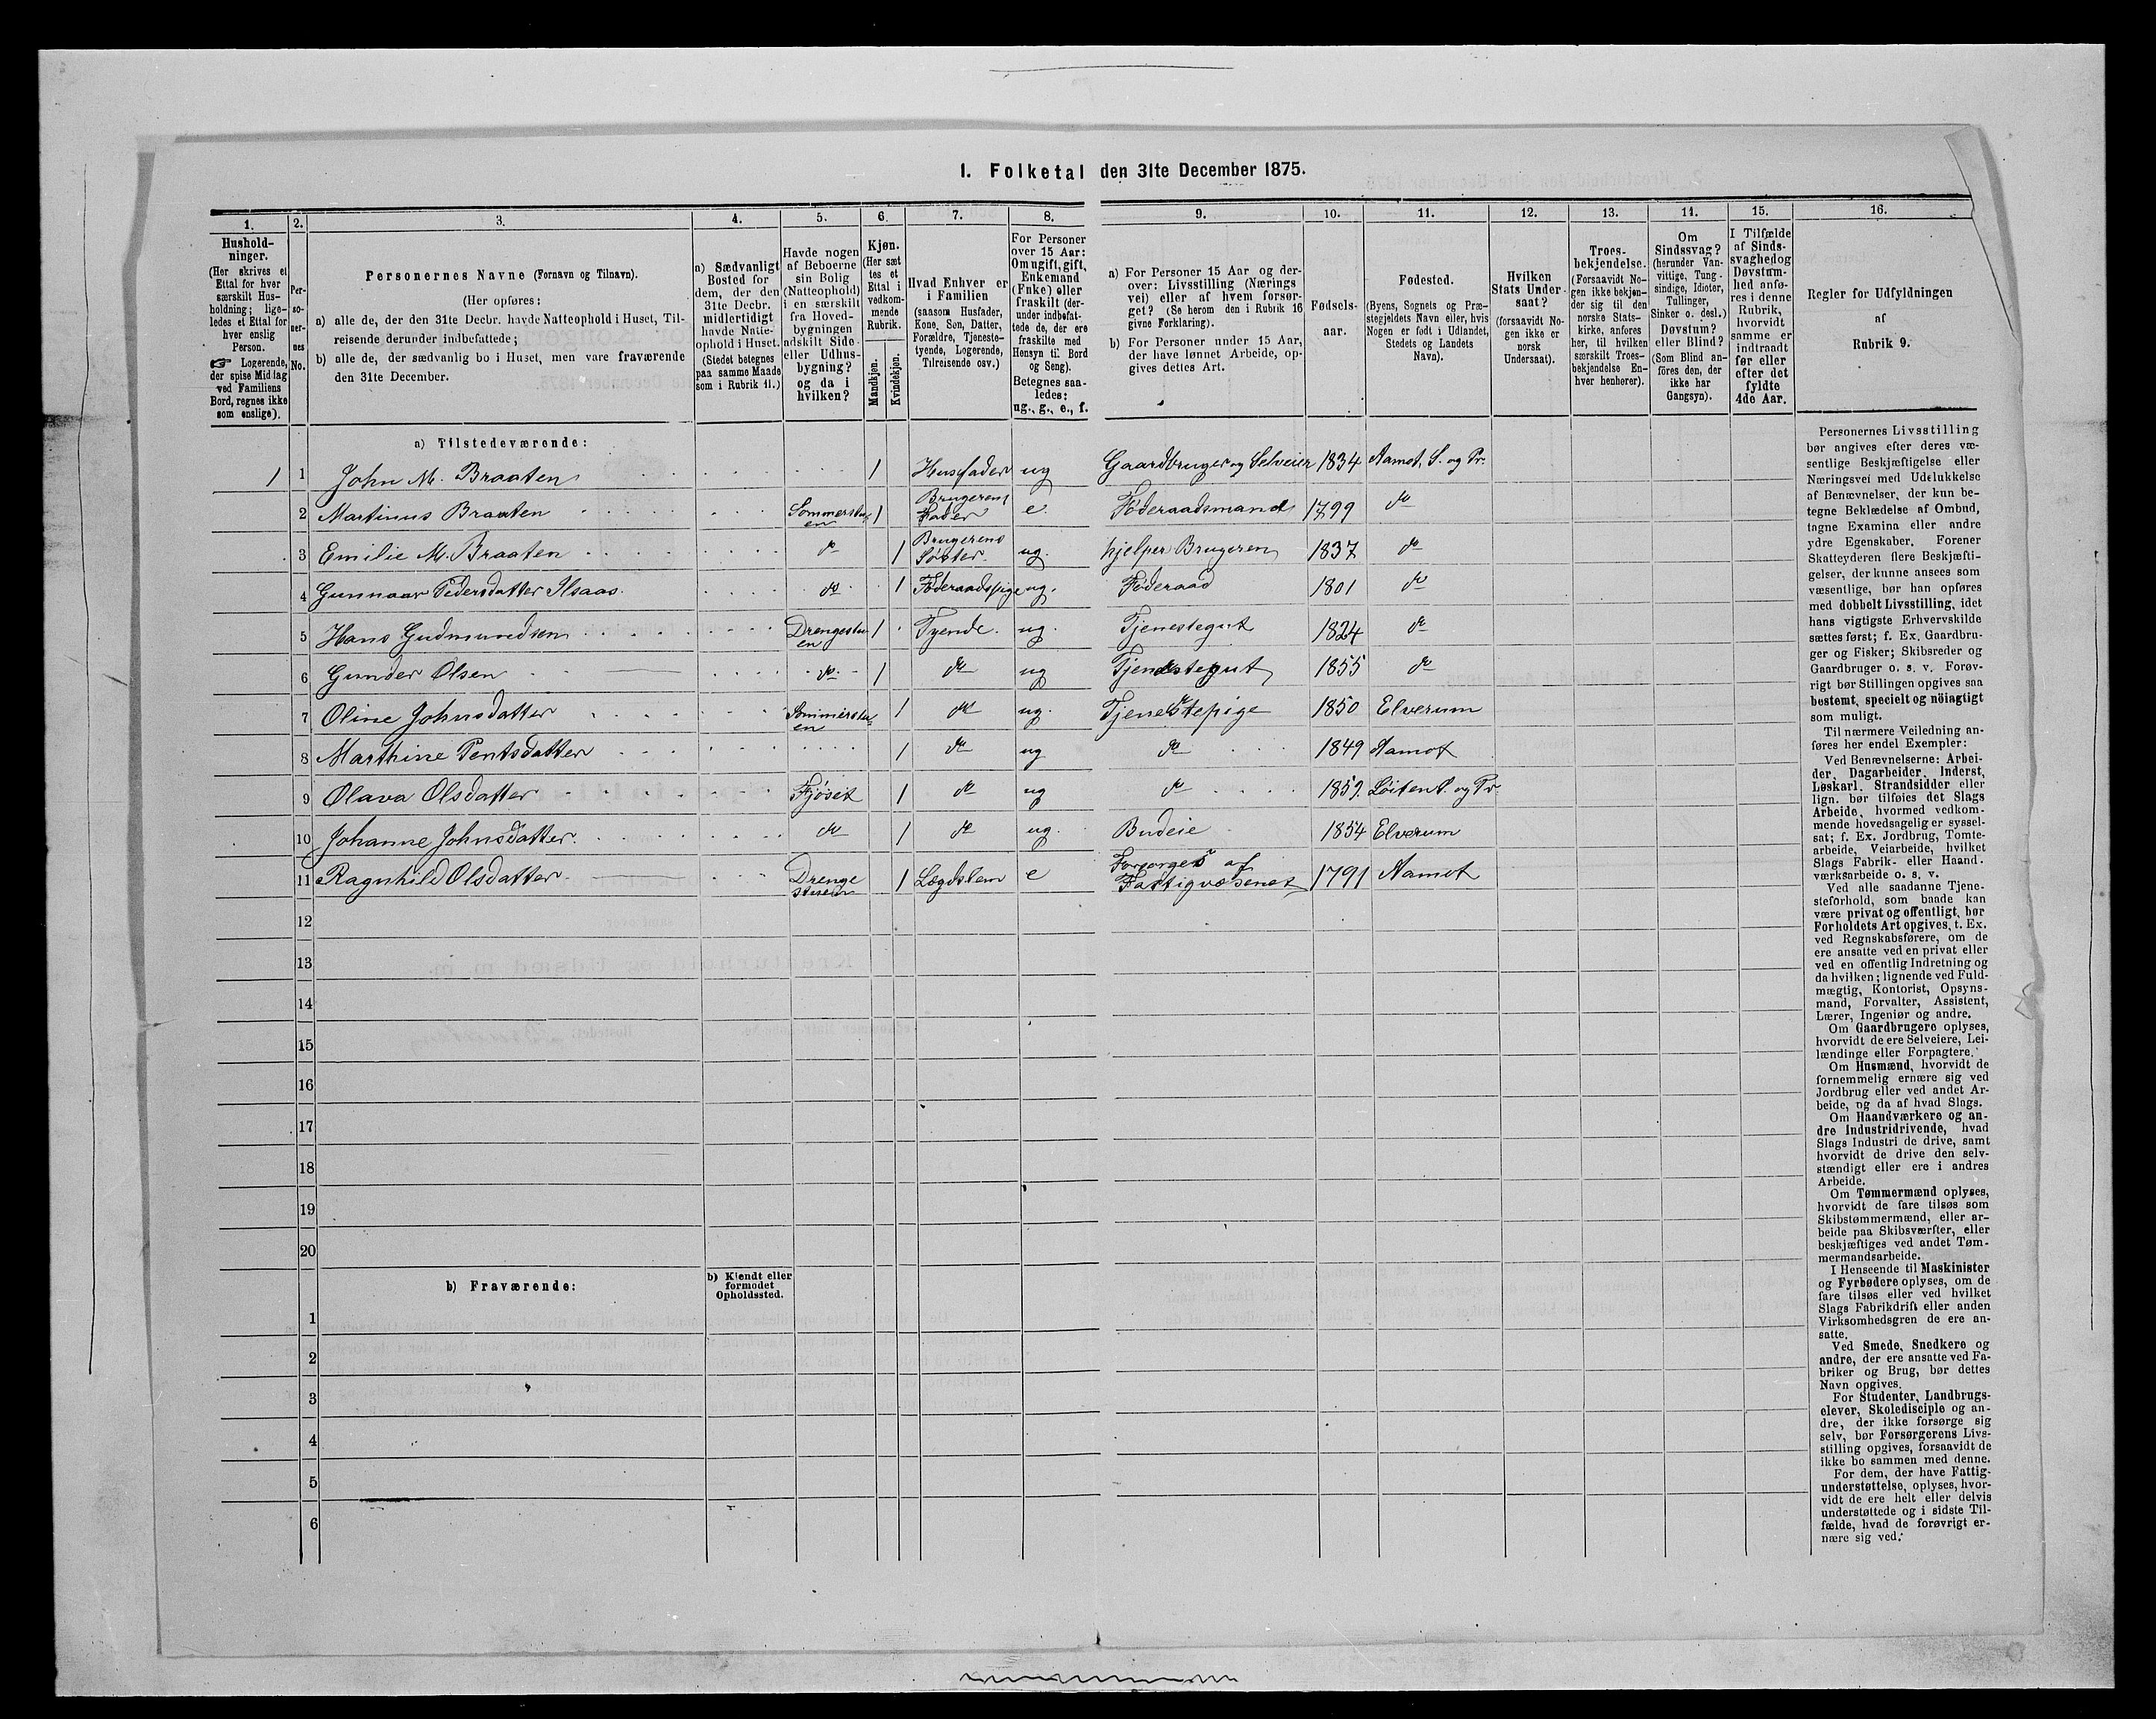 1. Folketal den 31te December 1875.
1. 2. 3. 4. 5. 6. 7. 8. 9. 10. 11. 12. 13. 14. 15. 16.
Hushold-
ninger.
(Her skrives et
Ettal for hver
særskilt Hus-
holdning; lige-
ledes et Ettal for
hver enslig
Person.
☞ Logerende,
der spise Middag
ved Familiens
Bord, regnes ikke
som enslige).
Per-
so-
ner-
nes
No.
Personernes Navne (Fornavn og Tilnavn).
(Her opføres:
a) alle de, der den 31te Decbr. havde Natteophold i Huset, Til-
reisende derunder indbefattede;
b) alle de, der sædvanlig bo i Huset, men vare fraværende
den 31te December.
a) Sædvanligt
Bosted for
dem, der den
31te Decbr.
midlertidigt
havde Natte-
ophold i Huset.
(Stedet betegnes
paa samme Maade
som i Rubrik 11.)
Havde nogen
af Beboerne
sin Bolig
(Natteophold)
i en særskilt
fra Hoved-
bygningen
adskilt Side-
eller Udhus-
bygning?
og da i
hvilken?
Kjøn.
(Her sæt
tes et
Ettal i
vedkom-
mende
Rubrik.
Mandkjøn.
Kvindekjøn.
Hvad Enhver er
i Familien
(saasom Husfader,
Kone, Søn, Datter,
Forældre, Tjeneste-
tyende, Logerende,
Tilreisende osv.)
For Personer
over 15 Aar:
Om ugift, gift,
Enkemand
(Enke) eller
fraskilt (der-
under indbefat-
tede de, der ere
fraskilte med
Hensyn til Bord
og Seng).
Betegnes saa-
ledes:
ug., g., e., f.
a) For Personer 15 Aar og der-
over: Livsstilling (Nærings
vei) eller af hvem forsør-
get? (Se herom den i Rubrik 16
givne Forklaring).
b) For Personer under 15 Aar,
der have lønnet Arbeide, op-
gives dettes Art.
Fødsels-
aar.
Fødested.
(Byens, Sognets og Præ-
stegjeldets Navn eller, hvis
Nogen er født i Udlandet,
Stedets og Landets
Navn).
Hvilken
Stats Under-
saat?
(forsaavidt No-
gen ikke er
norsk
Undersaat).
Troes-
bekjendelse.
(Forsaavidt No-
gen ikke bekjen-
der sig til den
norske Stats-
kirke, anføres
her, til hvilken
særskilt Troes-
bekjendelse En-
hver henhører).
Om
Sindssvag?
(herunder Van-
vittige, Tung-
sindige, Idioter,
Tullinger,
Sinker o. desl.)
Døvstum?
eller Blind?
(Som Blind an-
føres den, der
ikke har
Gangsyn).
I Tilfælde
af Sinds-
svaghed og
Døvstum-
hed anfø-
res i denne
Rubrik,
hvorvidt
samme er
indtraadt
før eller
efter det
fyldte
4de Aar.
Regler for Udfyldningen
af
Rubrik 9.
a) Tilstedeværende:
1 1 John M. Braaten 1 Husfader ug Gaardbruger og Selveier 1834 Aamot, S. og Pr.
2 Martinus Braaten Sommerstu-en 1 Brugerens Fader e. Føderaadsmand 1799 do
3 Emilie M. Braaten do 1 Brugerens Søster ug. hjelper Brugeren 1837 do
4 Gunnaar Pedersdatter Ilsaas do 1 Føderaadspige ug. Føderaad 1801 do
5 Hans Gudmundsen Drengestu-en 1 Tyende ug. Tjenestegut 1824 do
6 Gunder Olsen do 1 do ug Tjenestegut 1855 do
7 Oline Johnsdatter Sommerstu-en 1 do ug. Tjenestepige 1850 Elverum
8 Marthine Pentsdatter 1 do ug do 1849 Aamot
9 Olava Olsdatter Fjøset 1 do ug do 1859. Løiten S. og Pr
10 Johanne Johnsdatter. do 1 do ug. Budeie 1854 Elverum
11 Ragnhild Olsdatter Drenge stuen 1 Lægdslem e Forsørges af Fattigvæsenet 1791 Aamot
12
13
14
15
16
17
18
19
20
b) Fraværende:
b) Kjendt eller
formodet
Opholdssted.
1
2
3
4
5
6
Personernes Livsstilling
bør angives efter deres væ-
sentlige Beskjæftigelse eller
Næringsvei med Udelukkelse
af Benævnelser, der kun be-
tegne Beklædelse af Ombud,
tagne Examina eller andre
ydre Egenskaber. Forener
Skatteyderen flere Beskjæfti-
gelser, der kunne ansees som
væsentlige, bør han opføres
med dobbelt Livsstilling, idet
hans vigtigste Erhvervskilde
sættes først; f. Ex. Gaardbru-
ger og Fisker; Skibsreder og
Gaardbruger o. s. v. Forøv-
rigt bør Stillingen opgives saa
bestemt, specielt og nöiagtigt
som muligt.
Til nærmere Veiledning an-
føres her endel Exempler:
Ved Benævnelserne: Arbei-
der, Dagarbeider, Inderst,
Løskarl, Strandsidder eller
lign. bør tilføies det Slags
Arbeide, hvormed vedkom-
mende hovedsagelig er syssel-
sat; f. Ex. Jordbrug, Tomte-
arbeide, Veiarbeide, hvilket
Slags Fabrik- eller Haand-
værksarbeide o. s. v.
Ved alle saadanne Tjene-
steforhold, som baade kan
være privat og offentligt, bør
Forholdets Art opgives, t. Ex.
ved Regnskabsførere, om de
ere ansatte ved en privat eller
ved en offentlig Indretning og
da hvilken; lignende ved Fuld-
mægtig, Kontorist, Opsyns-
mand, Forvalter, Assistent,
Lærer, Ingeniør og andre.
Om Gaardbrugere oplyses,
hvorvidt de ere Selveiere, Lei-
lændinge eller Forpagtere.
Om Husmænd, hvorvidt de
fornemmelig ernære sig ved
Jordbrug eller ved andet Ar-
beide, og da af hvad Slags.
Om Haandværkere og an-
dre Industridrivende, hvad
Slags Industri de drive, samt
hvorvidt de drive den selv-
stændigt eller ere i andres
Arbeide.
Om Tømmermænd oplyses,
hvorvidt de fare tilsøs som
Skibstømmermænd, eller ar-
beide paa Skibsværfter, eller
beskjæftiges ved andet Tøm-
mermandsarbeide.
I Henseende til Maskinister
og Fyrbødere oplyses, om de
fare tilsøs eller ved hvilket
Slags Fabrikdrift eller anden
Virksomhedsgren de ere an-
satte.
Ved Smede, Snedkere og
andre, der ere ansatte ved Fa-
briker og Brug, bør dettes
Navn opgives.
For Studenter, Landbrugs-
elever, Skoledisciple og an-
dre, der ikke forsørge sig
selv, bør Forsørgerens Livs-
stilling opgives, forsaavidt de
ikke bo sammen med denne.
For dem, der have Fattig-
understøttelse, oplyses, hvor-
vidt de ere helt eller delvis
understøttede og i sidste Til-
fælde, hvad de forøvrigt er-
nære sig ved.